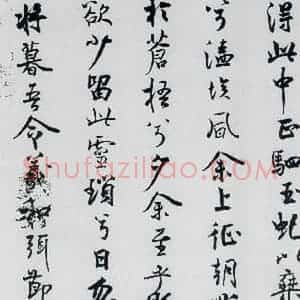 得此中正駟玉虬以椉
兮溘埃風余上征朝
於蒼梧兮夕余至乎
欲少留此靈瑣兮日忽
將暮吾令羲和弭節
Shufaziliao.com